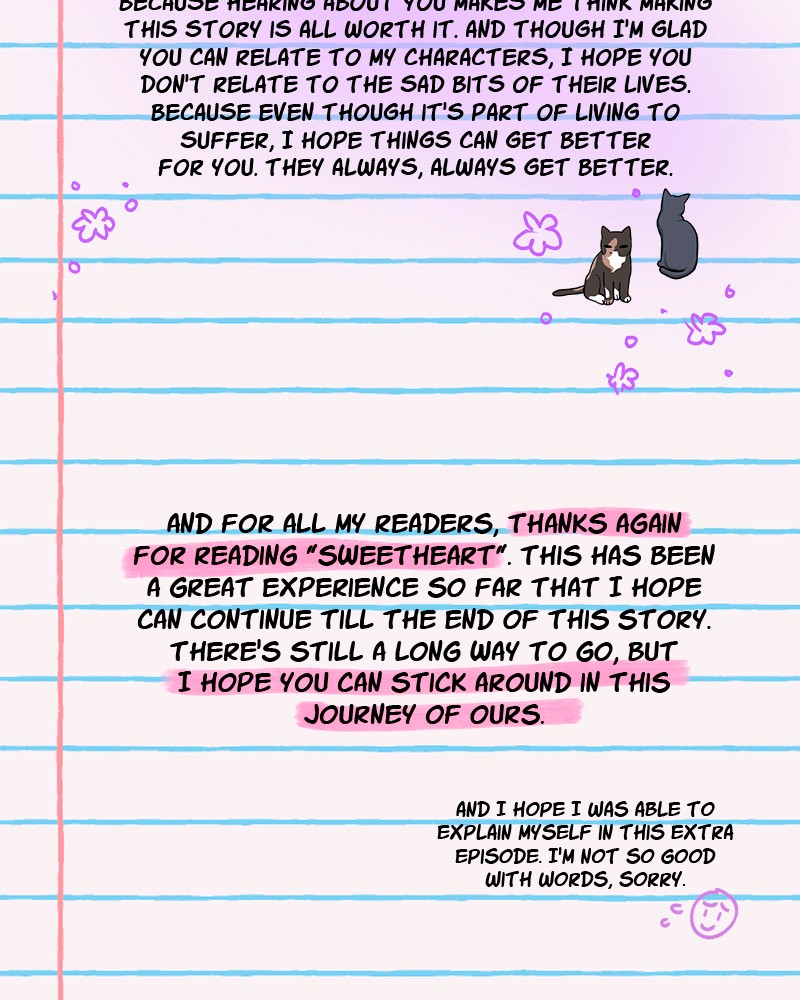 BECAUSE HEARING ABOUT YOU MAKES ME THINK MAKING
THIS STORY IS ALL WORTH IT. AND THOUGH I'M GLAD
YOU CAN RELATE TO MY CHARACTERS, I HOPE YOU
DON'T RELATE TO THE SAD BITS OF THEIR LIVES.
BECAUSE EVEN THOUGH IT'S PART OF LIVING TO
SUFFER, I HOPE THINGS CAN GET BETTER
FOR YOU. THEY ALWAYS, ALWAYS GET BETTER.
AND FOR ALL MY READERS, THANKS AGAIN
FOR READING "SWEETHEART". THIS HAS BEEN
A GREAT EXPERIENCE SO FAR THAT I HOPE
CAN CONTINUE TILL THE END OF THIS STORY.
THERE'S STILL A LONG WAY TO GO, BUT
I HOPE YOU CAN STICK AROUND IN THIS
JOURNEY OF OURS.
AND I HOPE I WAS ABLE TO
EXPLAIN MYSELF IN THIS EXTRA
EPISODE. I'M NOT SO GOOD
WITH WORDS, SORRY.